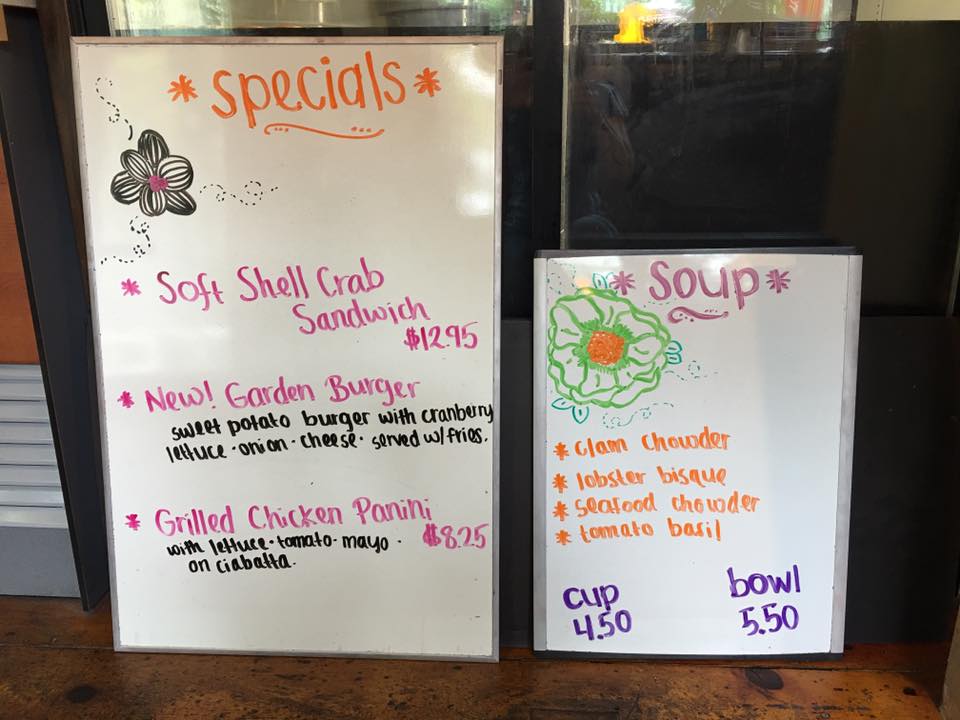 * Specials *
* Soft Shell Crab
Sandwich
$12.95
* New! Garden Burger
sweet potato burger with cranberry
lettuce · onion · cheese · served w/ fries.
* Grilled Chicken Panini
$8.25
with lettuce · tomato · mayo ·
on ciabatta.
* Soup *
* clam chowder
* lobster bisque
* seafood chowder
* tomato basil
cup bowl
4.50 5.50